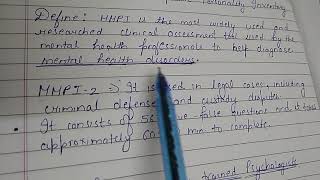 Personality Inventory
Define: MMPI is the most widely used and
researched clinical assessment tool used by the
mental health professionals to help diagnose
mental health disorders.
MMPI-2 => It is used in legal cases, including
criminal defense and custody disputes.
It consists of 56 true-false questions and it takes
approximately 60 min to complete.
trained Psychologists